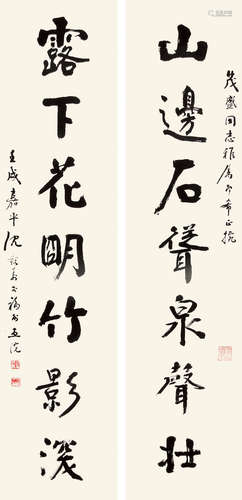 山邊石聳泉聲壯
茂盛同志雅屬即希正撓
露下花明竹影深
壬戌嘉平沈